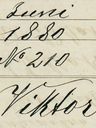 Juni
1880
No 210
Viktor